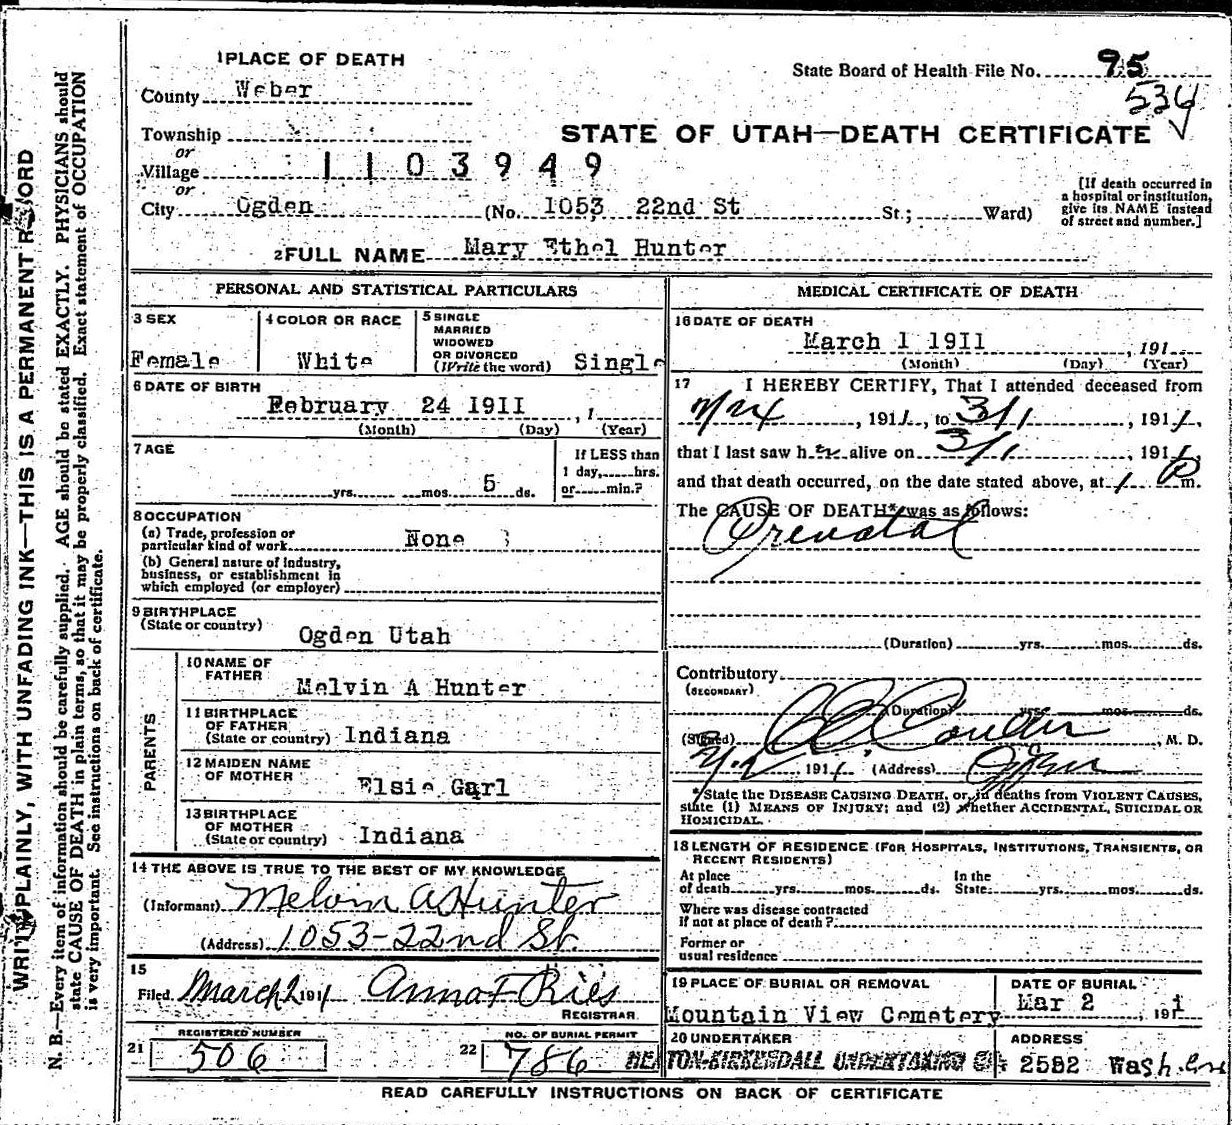 1 PLACE OF DEATH
State Board of Health File No. 95
County Weber
534
Township
STATE OF UTAH—DEATH CERTIFICATE
or
Village 1 1 0 3 9 4 9
or
City Ogden (No. 1053 22nd St St.; Ward)
[If death occurred in a hospital or institution, give its NAME instead of street and number.]
2 FULL NAME Mary Ethel Hunter
PERSONAL AND STATISTICAL PARTICULARS
3 SEX
Female
4 COLOR OR RACE
White
5 SINGLE
MARRIED
WIDOWED
OR DIVORCED
(Write the word) Single
6 DATE OF BIRTH
February 24 1911 , 1
(Month) (Day) (Year)
7 AGE
yrs. mos. 5 ds.
If LESS than
1 day, hrs.
or min.?
8 OCCUPATION
(a) Trade, profession or
particular kind of work None
(b) General nature of industry,
business, or establishment in
which employed (or employer)
9 BIRTHPLACE
(State or country) Ogden Utah
PARENTS
10 NAME OF
FATHER Melvin A Hunter
11 BIRTHPLACE
OF FATHER
(State or country) Indiana
12 MAIDEN NAME
OF MOTHER Elsie Garl
13 BIRTHPLACE
OF MOTHER
(State or country) Indiana
14 THE ABOVE IS TRUE TO THE BEST OF MY KNOWLEDGE
(Informant) Melvin A Hunter
(Address) 1053-22nd St.
15
Filed March 2 1911 Anna F Ries
REGISTRAR
REGISTERED NUMBER
21 506
NO. OF BURIAL PERMIT
22 786
MEDICAL CERTIFICATE OF DEATH
16 DATE OF DEATH
March 1 1911 , 191
(Month) (Day) (Year)
17 I HEREBY CERTIFY, That I attended deceased from
, 1911, to 3/1 , 1911,
that I last saw her alive on 3/1 , 1911,
and that death occurred, on the date stated above, at 1 P m.
The CAUSE OF DEATH* was as follows:
Prenatal
(Duration) yrs. mos. ds.
Contributory
(SECONDARY)
(Duration) yrs. mos. ds.
(Signed) M. D.
1911 (Address) Ogden
*State the DISEASE CAUSING DEATH, or, in deaths from VIOLENT CAUSES,
state (1) MEANS OF INJURY; and (2) whether ACCIDENTAL, SUICIDAL OR
HOMICIDAL.
18 LENGTH OF RESIDENCE (FOR HOSPITALS, INSTITUTIONS, TRANSIENTS, OR
RECENT RESIDENTS)
At place In the
of death yrs. mos. ds. State yrs. mos. ds.
Where was disease contracted
if not at place of death?
Former or
usual residence
19 PLACE OF BURIAL OR REMOVAL
Mountain View Cemetery
DATE OF BURIAL
Mar 2 , 1911
20 UNDERTAKER
TON-KIRKENDALL UNDERTAKING CO
ADDRESS
2582 Wash.
READ CAREFULLY INSTRUCTIONS ON BACK OF CERTIFICATE
WRITE PLAINLY, WITH UNFADING INK—THIS IS A PERMANENT RECORD
N. B.—Every item of information should be carefully supplied. AGE should be stated EXACTLY. PHYSICIANS should
state CAUSE OF DEATH in plain terms, so that it may be properly classified. Exact statement of OCCUPATION
is very important. See instructions on back of certificate.